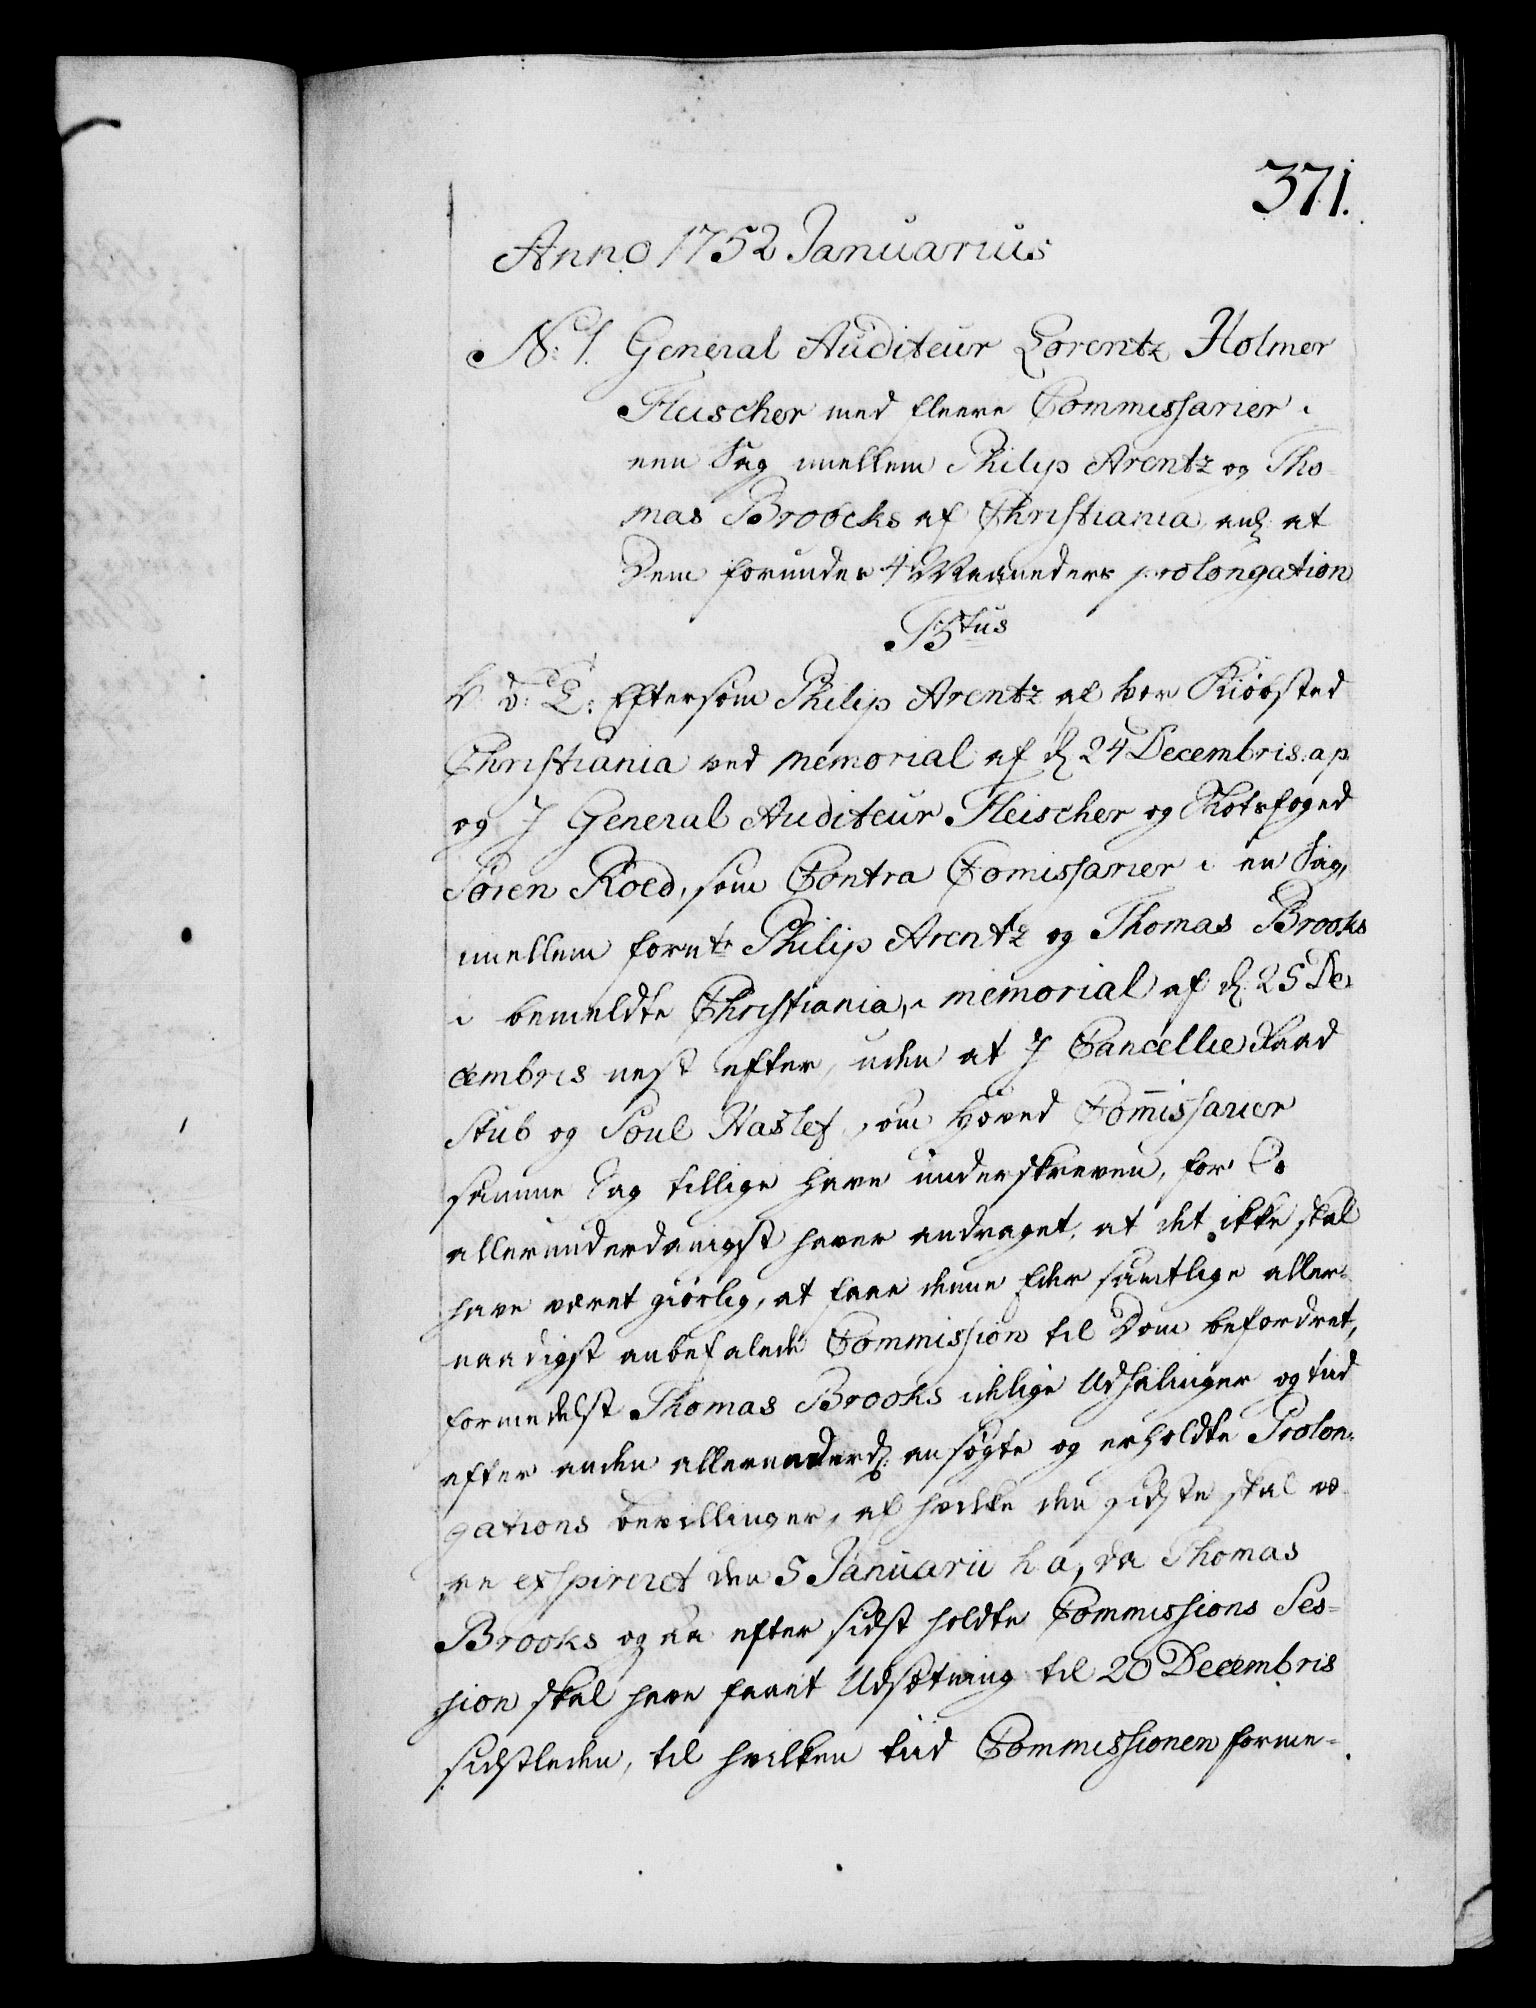 371.
Anno 1752 Januarius
No: 1. General Auditeur Lorentz Holmer
Fleischer med fleere Commissarier i
een Sag mellem Philip Arentz og Tho-
mas Broocks af Christiania, anl: at
Dem forundes 4 Maaneders prolongation
Btus
V. G: T: Eftersom Philip Arentz af vor Kiøbsted
Christiania ved memorial af d: 24 Decembris: a p
og I General Auditeur Fleischer og Stotsfoged
Søren Roed, som Contra Comissarier i en Sag,
mellem fornte Philip Arentz og Thomas Brooks
i bemeldte Christiania, i memorial af d: 25 De-
cembris nest efter, uden at I Cancellie Raad
Stub og Poul Haslef, som Hoved Com̄issarier
samme Sag tillige have underskreven, for Os
allerunderdanigst haver andraget, at det ikke skal
have været giørlig, at faae denne Eder samtlige aller-
naadigst anbefalede Commission til Dom befordret,
formedelst Thomas Brooks idelige Udhalinger og tiid
efter anden allerunderd: ansøgte og erholdte Prolon-
gations bevillinger, af hvilke den sidste skal væ-
re exspireret den 5 Januarii h a, da Thomas
Brooks og aa efter sidst holdte Commissions Ses-
sion skal have faaet Udsætning til 20 Decembris
sidstleden, til hvilken tiid Commissionen forme-